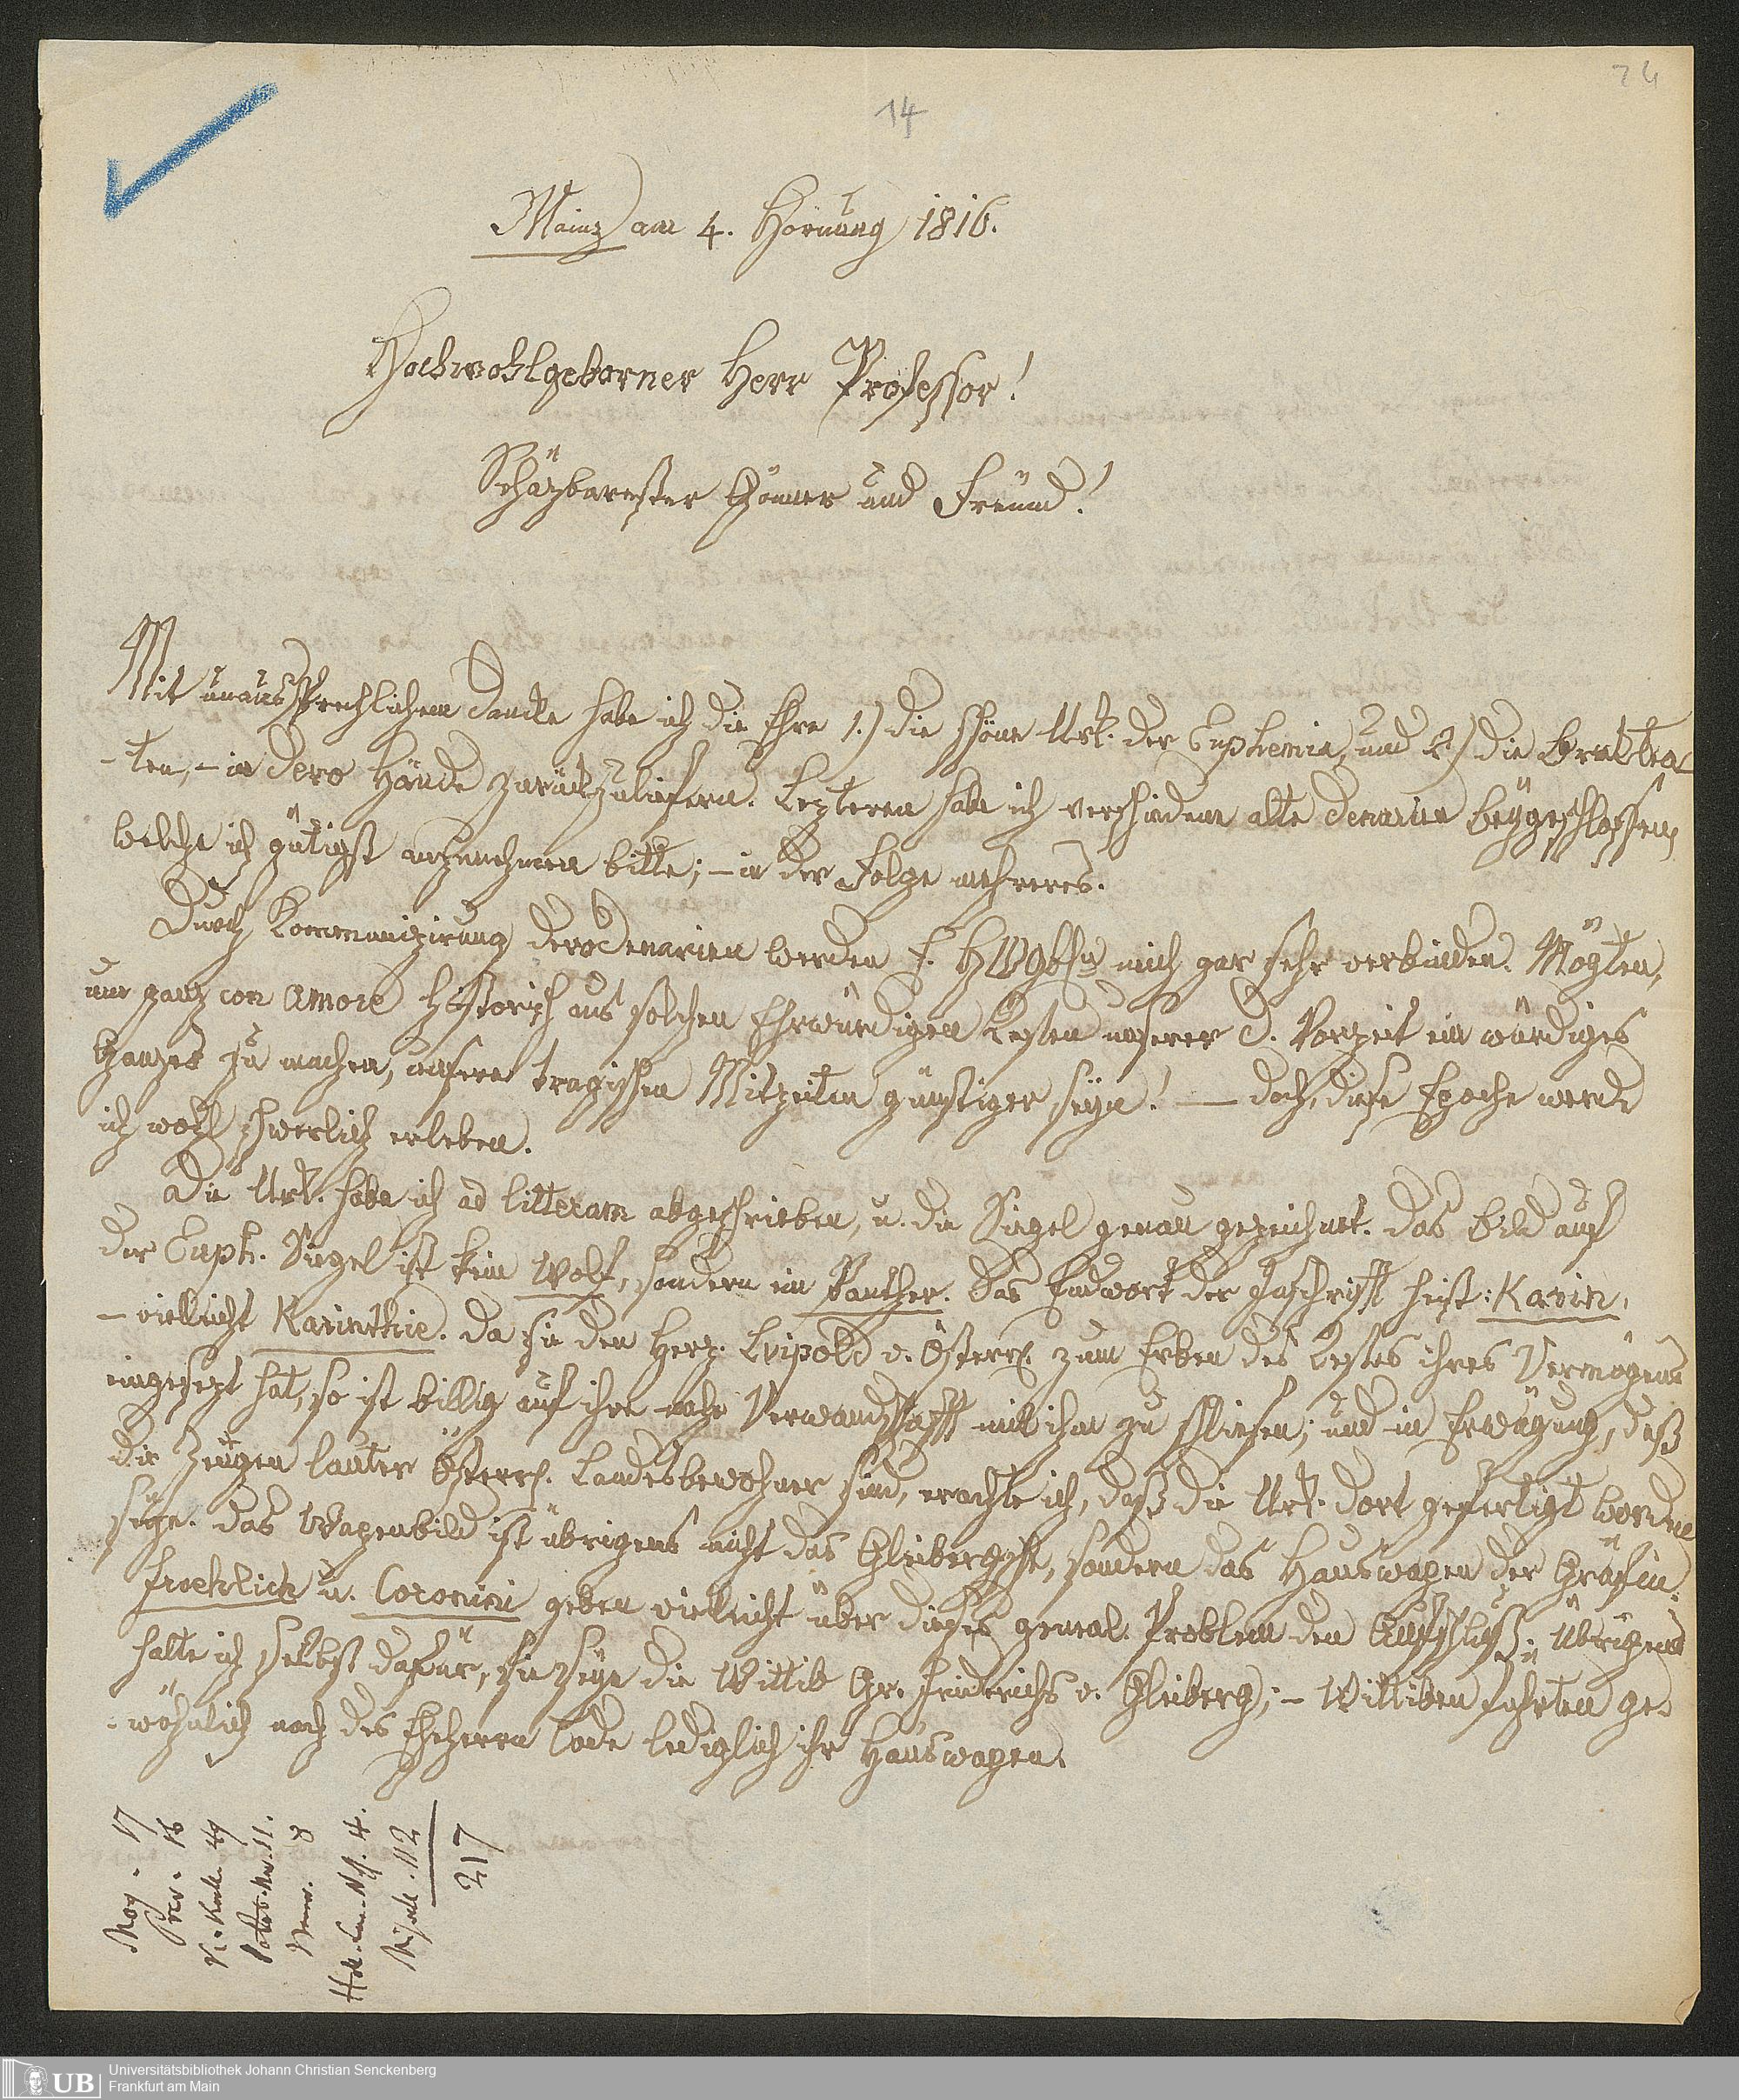 24
14
Mainz am 4. Hornung 1816.
Hochwohlgeborner Herr Professor!
Schäzbarester Gönner und Freund!
Mit unaussprechlichem Dancke habe ich die Ehre 1.) die schöne Urk. der Euphemia, und 2.) die Braktea-
-ten, – in Dero Hände zurückzuliefern. Lezteren habe ich verschiedene alte Denarien beÿgeschlossen,
welche ich gütigst anzunehmen bitte; – in der Folge mehreres.
Durch Kommunizirung Dero Denarien werden E. HWgbhn mich gar sehr verbinden. Mögten,
um ganz con Amore historisch aus solchen Ehrwürdigen Resten unserer D. Vorzeit ein würdiges
Ganzes zu machen, unsere tragischen Mitzeiten günstiger seÿn! — doch, diese Epoche werde
ich wohl schwerlich erleben.
Die Urk. habe ich ad litteram abgeschrieben, u. die Siegel genau gezeichnet. Das Bild auf
der Euph. Siegel ist kein Wolf, sondern ein Panther. Das Endwort der Inschrifft heist: Karin,
– vielleicht Karinthie. Da sie den Herz. Leipold v. Österr. zum Erben des Restes ihres Vermögens
eingesezt hat, so ist billig auf ihre nahe Verwandschafft mit ihm zu schliesen; und in Erwägung, daß
die Zeugen lauter Österr. Landesbewohner sind, erachte ich, daß die Urk. dort gefertigt worden
seÿe. Das Wapenbild ist übrigens nicht das Gleibergsche, sondern das Hauswapen der Gräfin.
Froehlich u. Coronini geben vielleicht über dieses geneal. Problem den Aufschluß. Übrigens
halte ich selbst dafür, sie seÿe die Wittib Gr. Friederichs v. Gleiberg; – Wittiben führten ge-
-wöhnlich nach des Eheherrn Tode lediglich ihr Hauswapen.
Mog. 17
16
49
11.
8
4.
112
217
UB Universitätsbibliothek Johann Christian Senckenberg
Frankfurt am Main